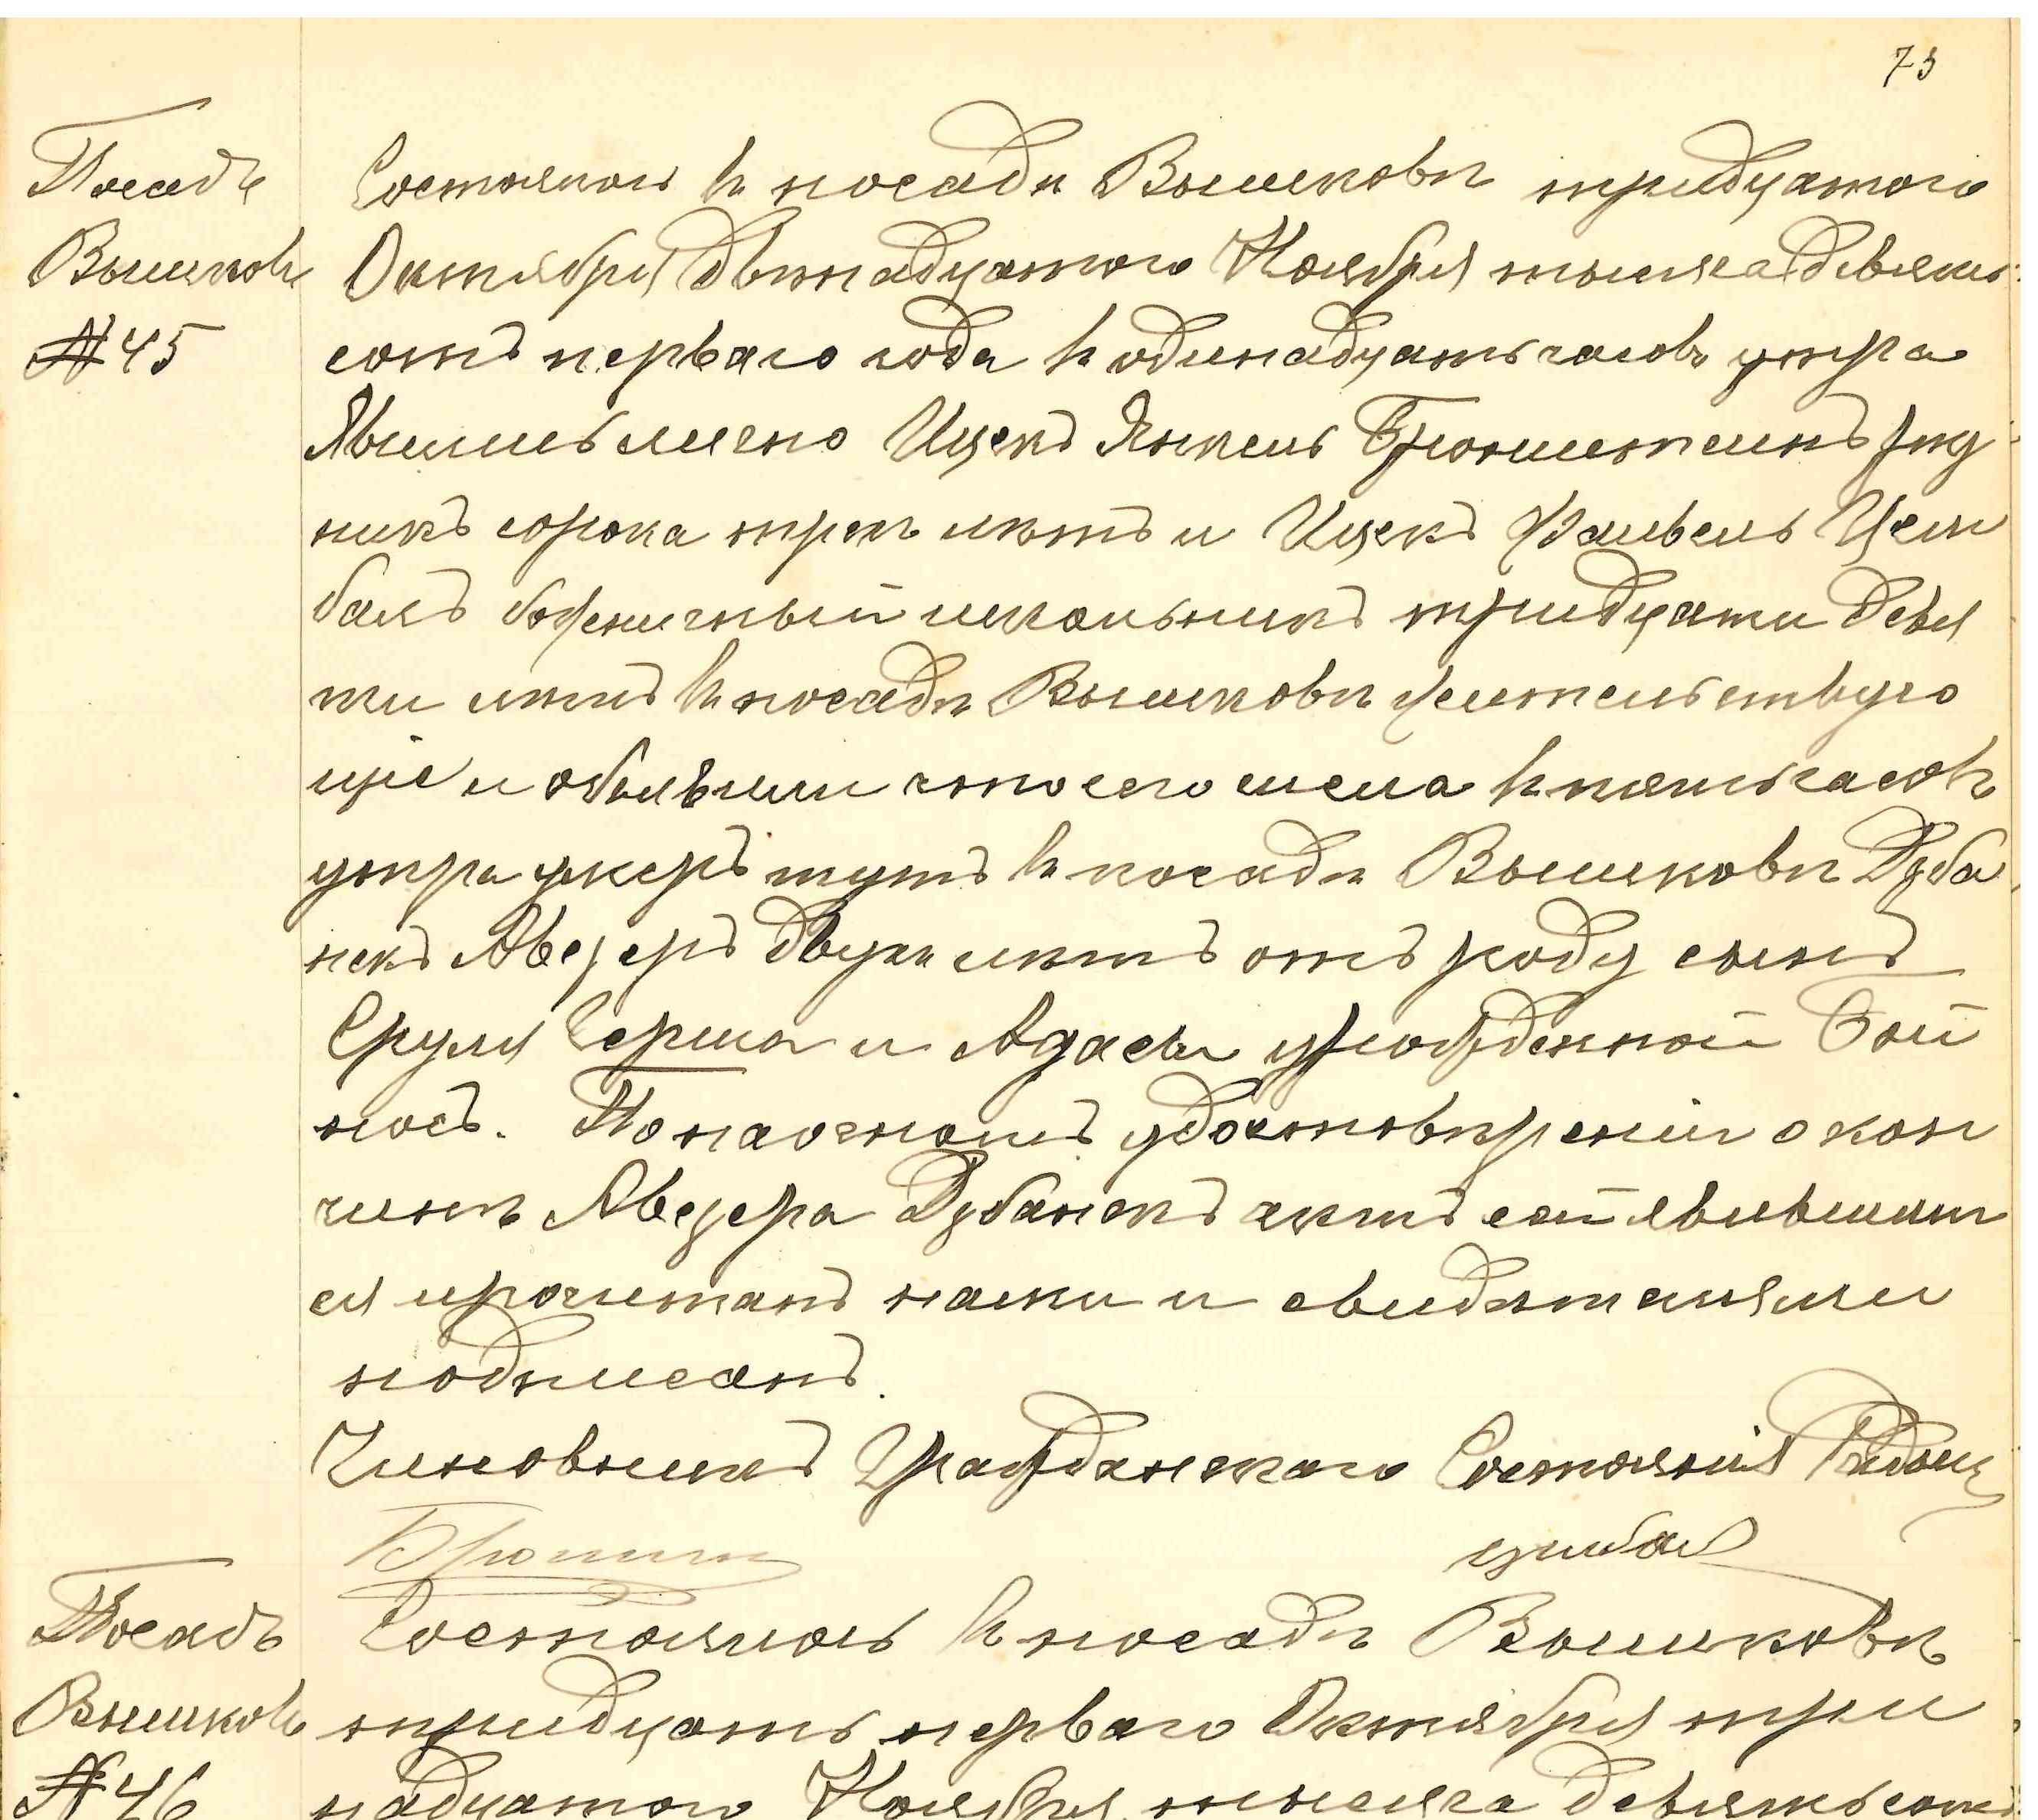 73
Посадъ
Вышковъ
№ 45
Состоялось въ посадѣ Вышковѣ тридцатого
Октября двѣнадцатого Ноября тысяча девять
сотъ перваго года въ одинадцать часовъ утра
Явились лично Ицекъ Янкель Бронштейнъ рѣз
никъ сорока трехъ лѣтъ и Ицекъ Файвель Цем
балъ божничный школьникъ тридцати девя
ти лѣтъ въ посадѣ Вышковѣ жительствую
щіе и объявили что сего числа въ пять часовъ
утра умеръ тутъ въ посадѣ Вышковѣ Дуба
некъ Авезеръ двухъ лѣтъ отъ роду сынъ
Сруля Герша и Адасы урожденной Вой
нос. По наочномъ удостовѣреніи о кон
чинѣ Авезера Дубанекъ актъ сей явившим
ся прочитанъ нами и свидѣтелями
подписанъ.
Чиновникъ Гражданскаго Состоянія
Посадъ
Вышковъ
№ 46
Состоялось въ посадѣ Вышковѣ
тридцать перваго Октября три
надцатого Ноября тысяча девятьсотъ